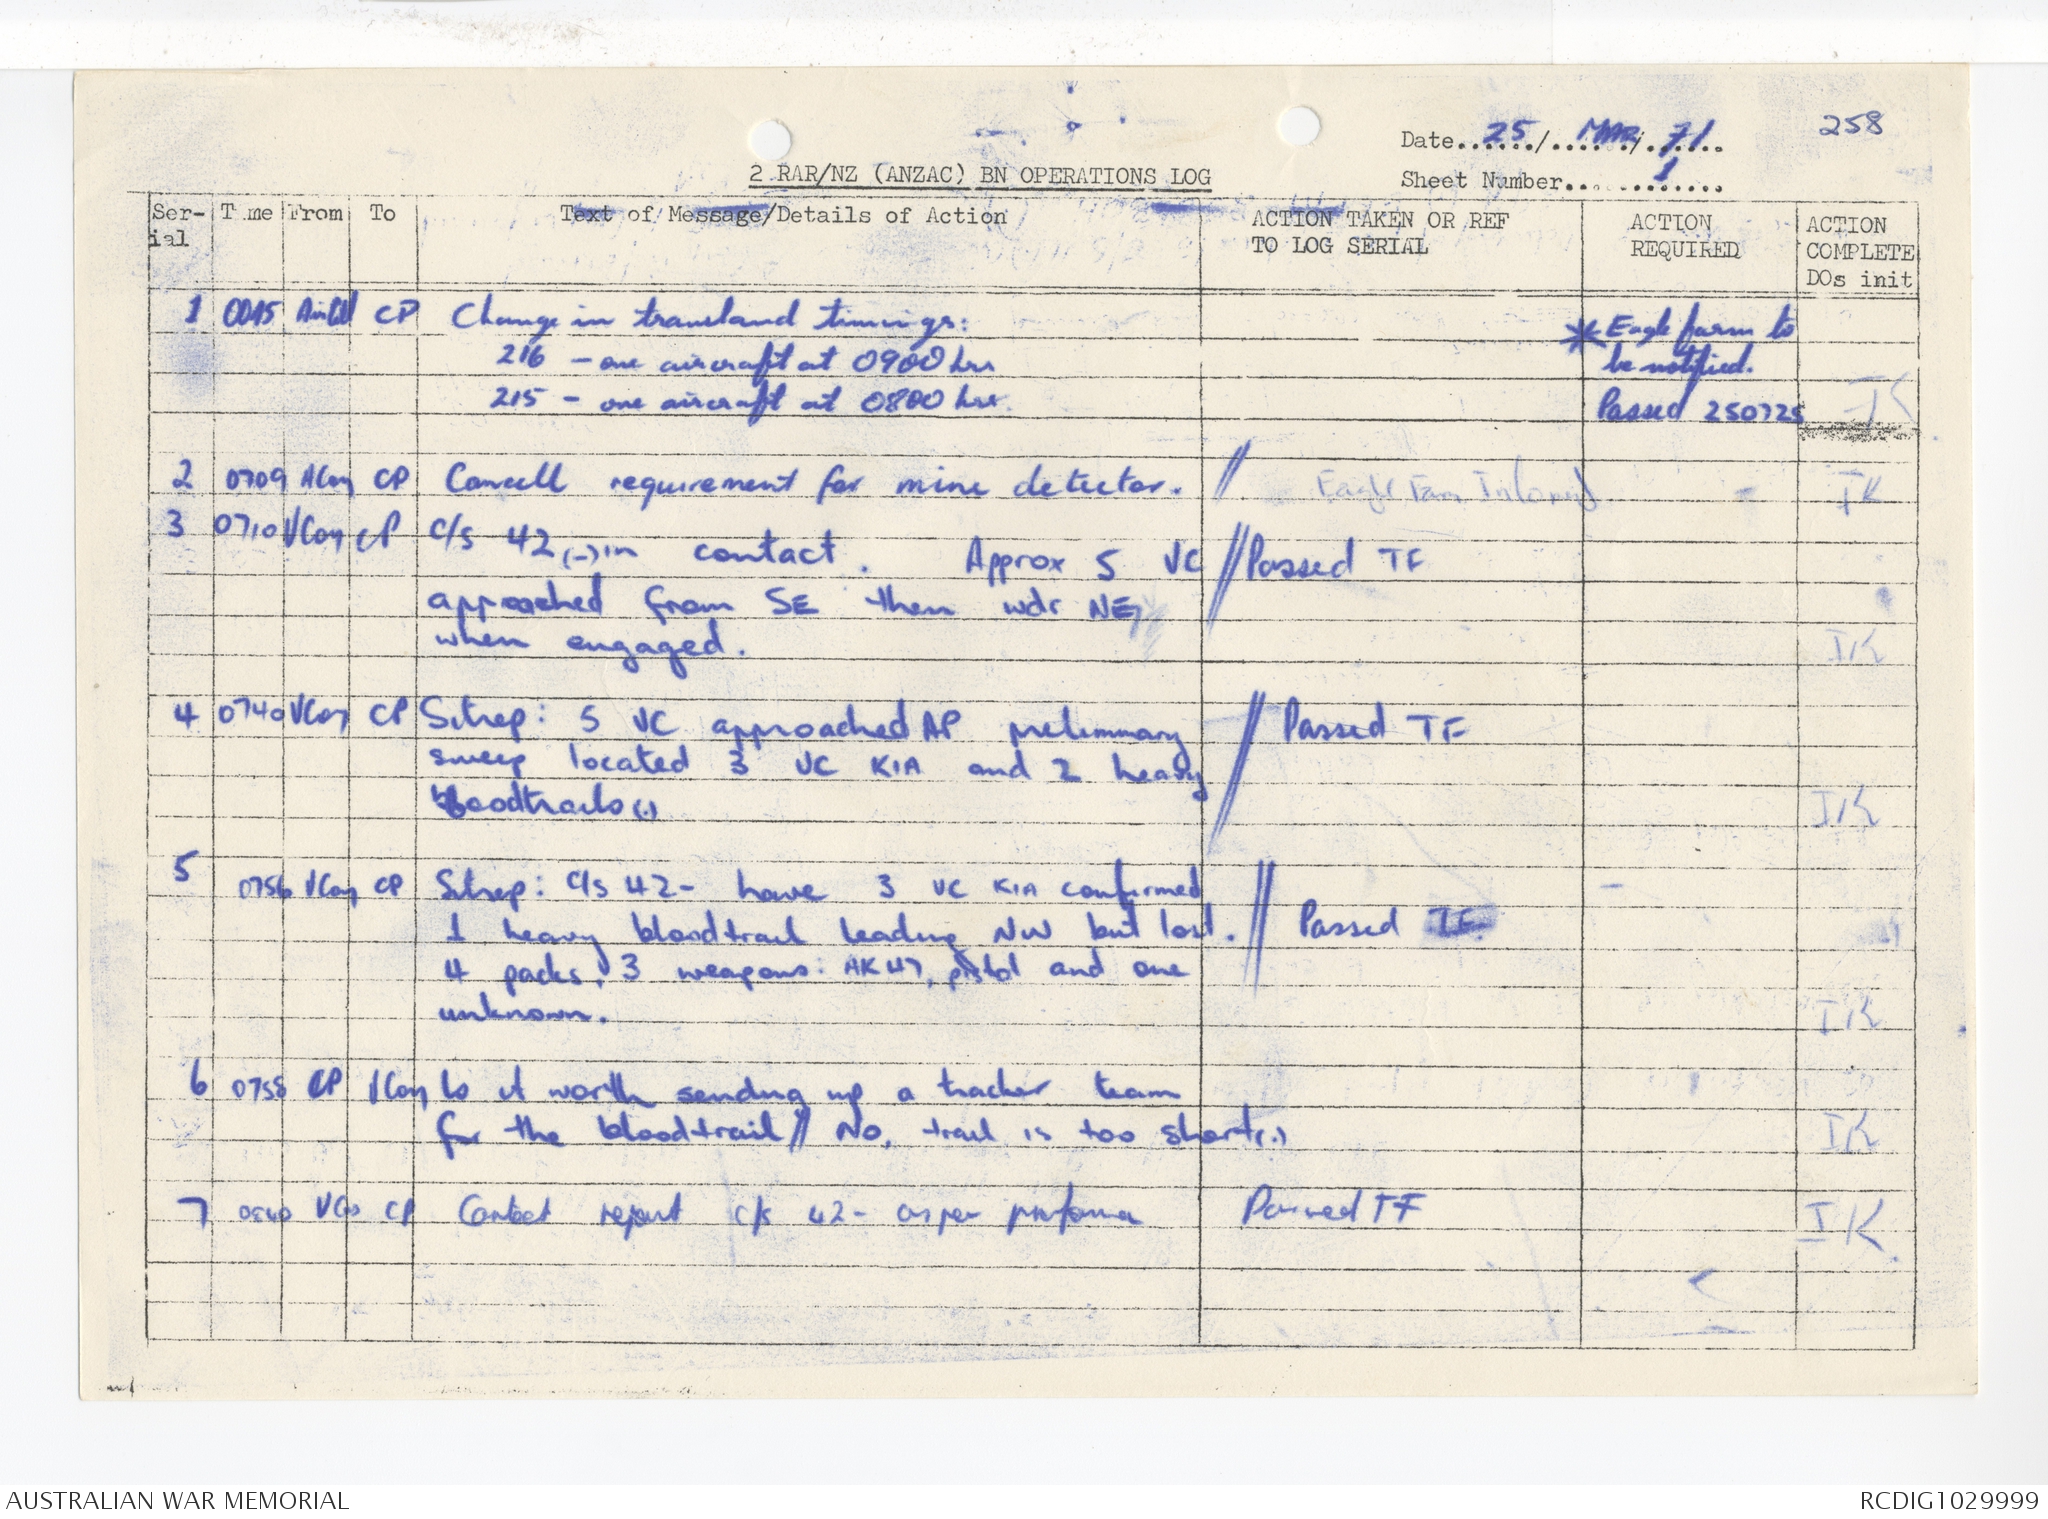 258
Date 25/MAR/71
Sheet Number 1
2 RAR/NZ (ANZAC) BN OPERATIONS LOG
Ser-ial Time From To Text of Message/Details of Action ACTION TAKEN OR REF TO LOG SERIAL ACTION REQUIRED ACTION COMPLETE DOs init
1 0045 CP Change in timings: * Eagle farm to
216 - one aircraft at 0900 hrs be notified.
215 - one aircraft at 0800 hrs. Passed 250725 IK
2 0709 ACoy CP Cancell requirement for mine detector. // Eagle Farm Informed IK
3 0710 VCoy CP C/S 42 (-) in contact. Approx 5 VC // Passed TF
approached from SE then wdr NE,
when engaged. IK
4 0740 VCoy CP Sitrep: 5 VC approached AP preliminary // Passed TF
sweep located 3 VC KIA and 2 heavy
bloodtrails(.) IK
5 0756 VCoy CP Sitrep: C/S 42 - have 3 VC KIA confirmed
1 heavy bloodtrail leading NW but lost. // Passed TF.
4 packs, 3 weapons: AK47, pistol and one
unknown. IK
6 0758 CP VCoy Is it worth sending up a tracker team
for the bloodtrail // No, trail is too short(.) IK
7 0840 VCo CP Contact report c/s 42 - as per proforma Passed TF IK.
AUSTRALIAN WAR MEMORIAL
RCDIG1029999